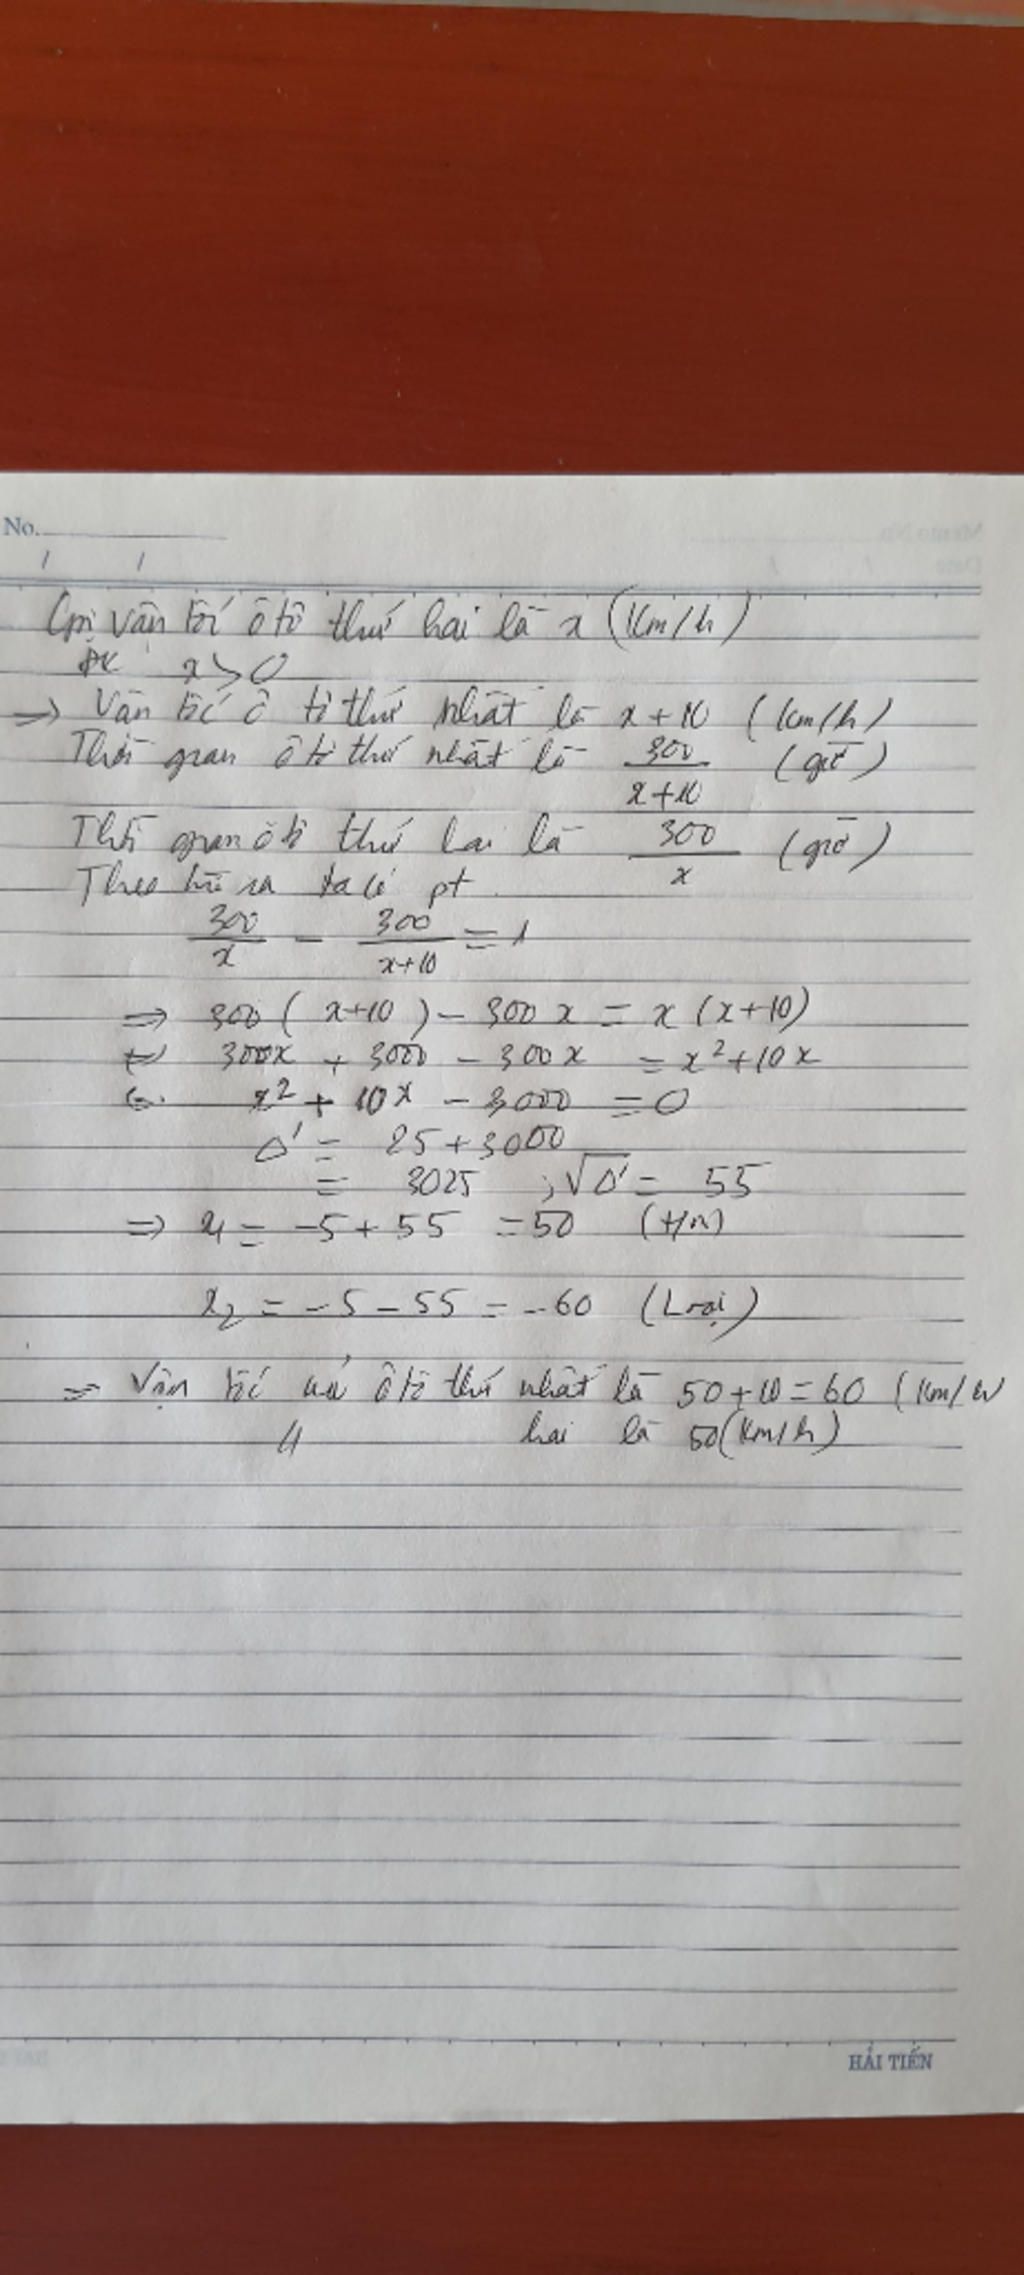 No.
Gọi vận tốc ô tô thứ hai là x (Km/h)
ĐK x > 0
=> Vận tốc ô tô thứ nhất là x + 10 (Km/h)
Thời gian ô tô thứ nhất là 300/(x+10) (giờ)
Thời gian ô tô thứ hai là 300/x (giờ)
Theo bài ra ta có pt
300/x - 300/(x+10) = 1
=> 300 (x+10) - 300x = x (x+10)
<=> 300x + 3000 - 300x = x² + 10x
<=> x² + 10x - 3000 = 0
Δ' = 25 + 3000
= 3025 ; √Δ' = 55
=> x₁ = -5 + 55 = 50 (t/m)
x₂ = -5 - 55 = -60 (Loại)
=> Vận tốc của ô tô thứ nhất là 50 + 10 = 60 (Km/h
// hai là 50 (Km/h)
HẢI TIẾN